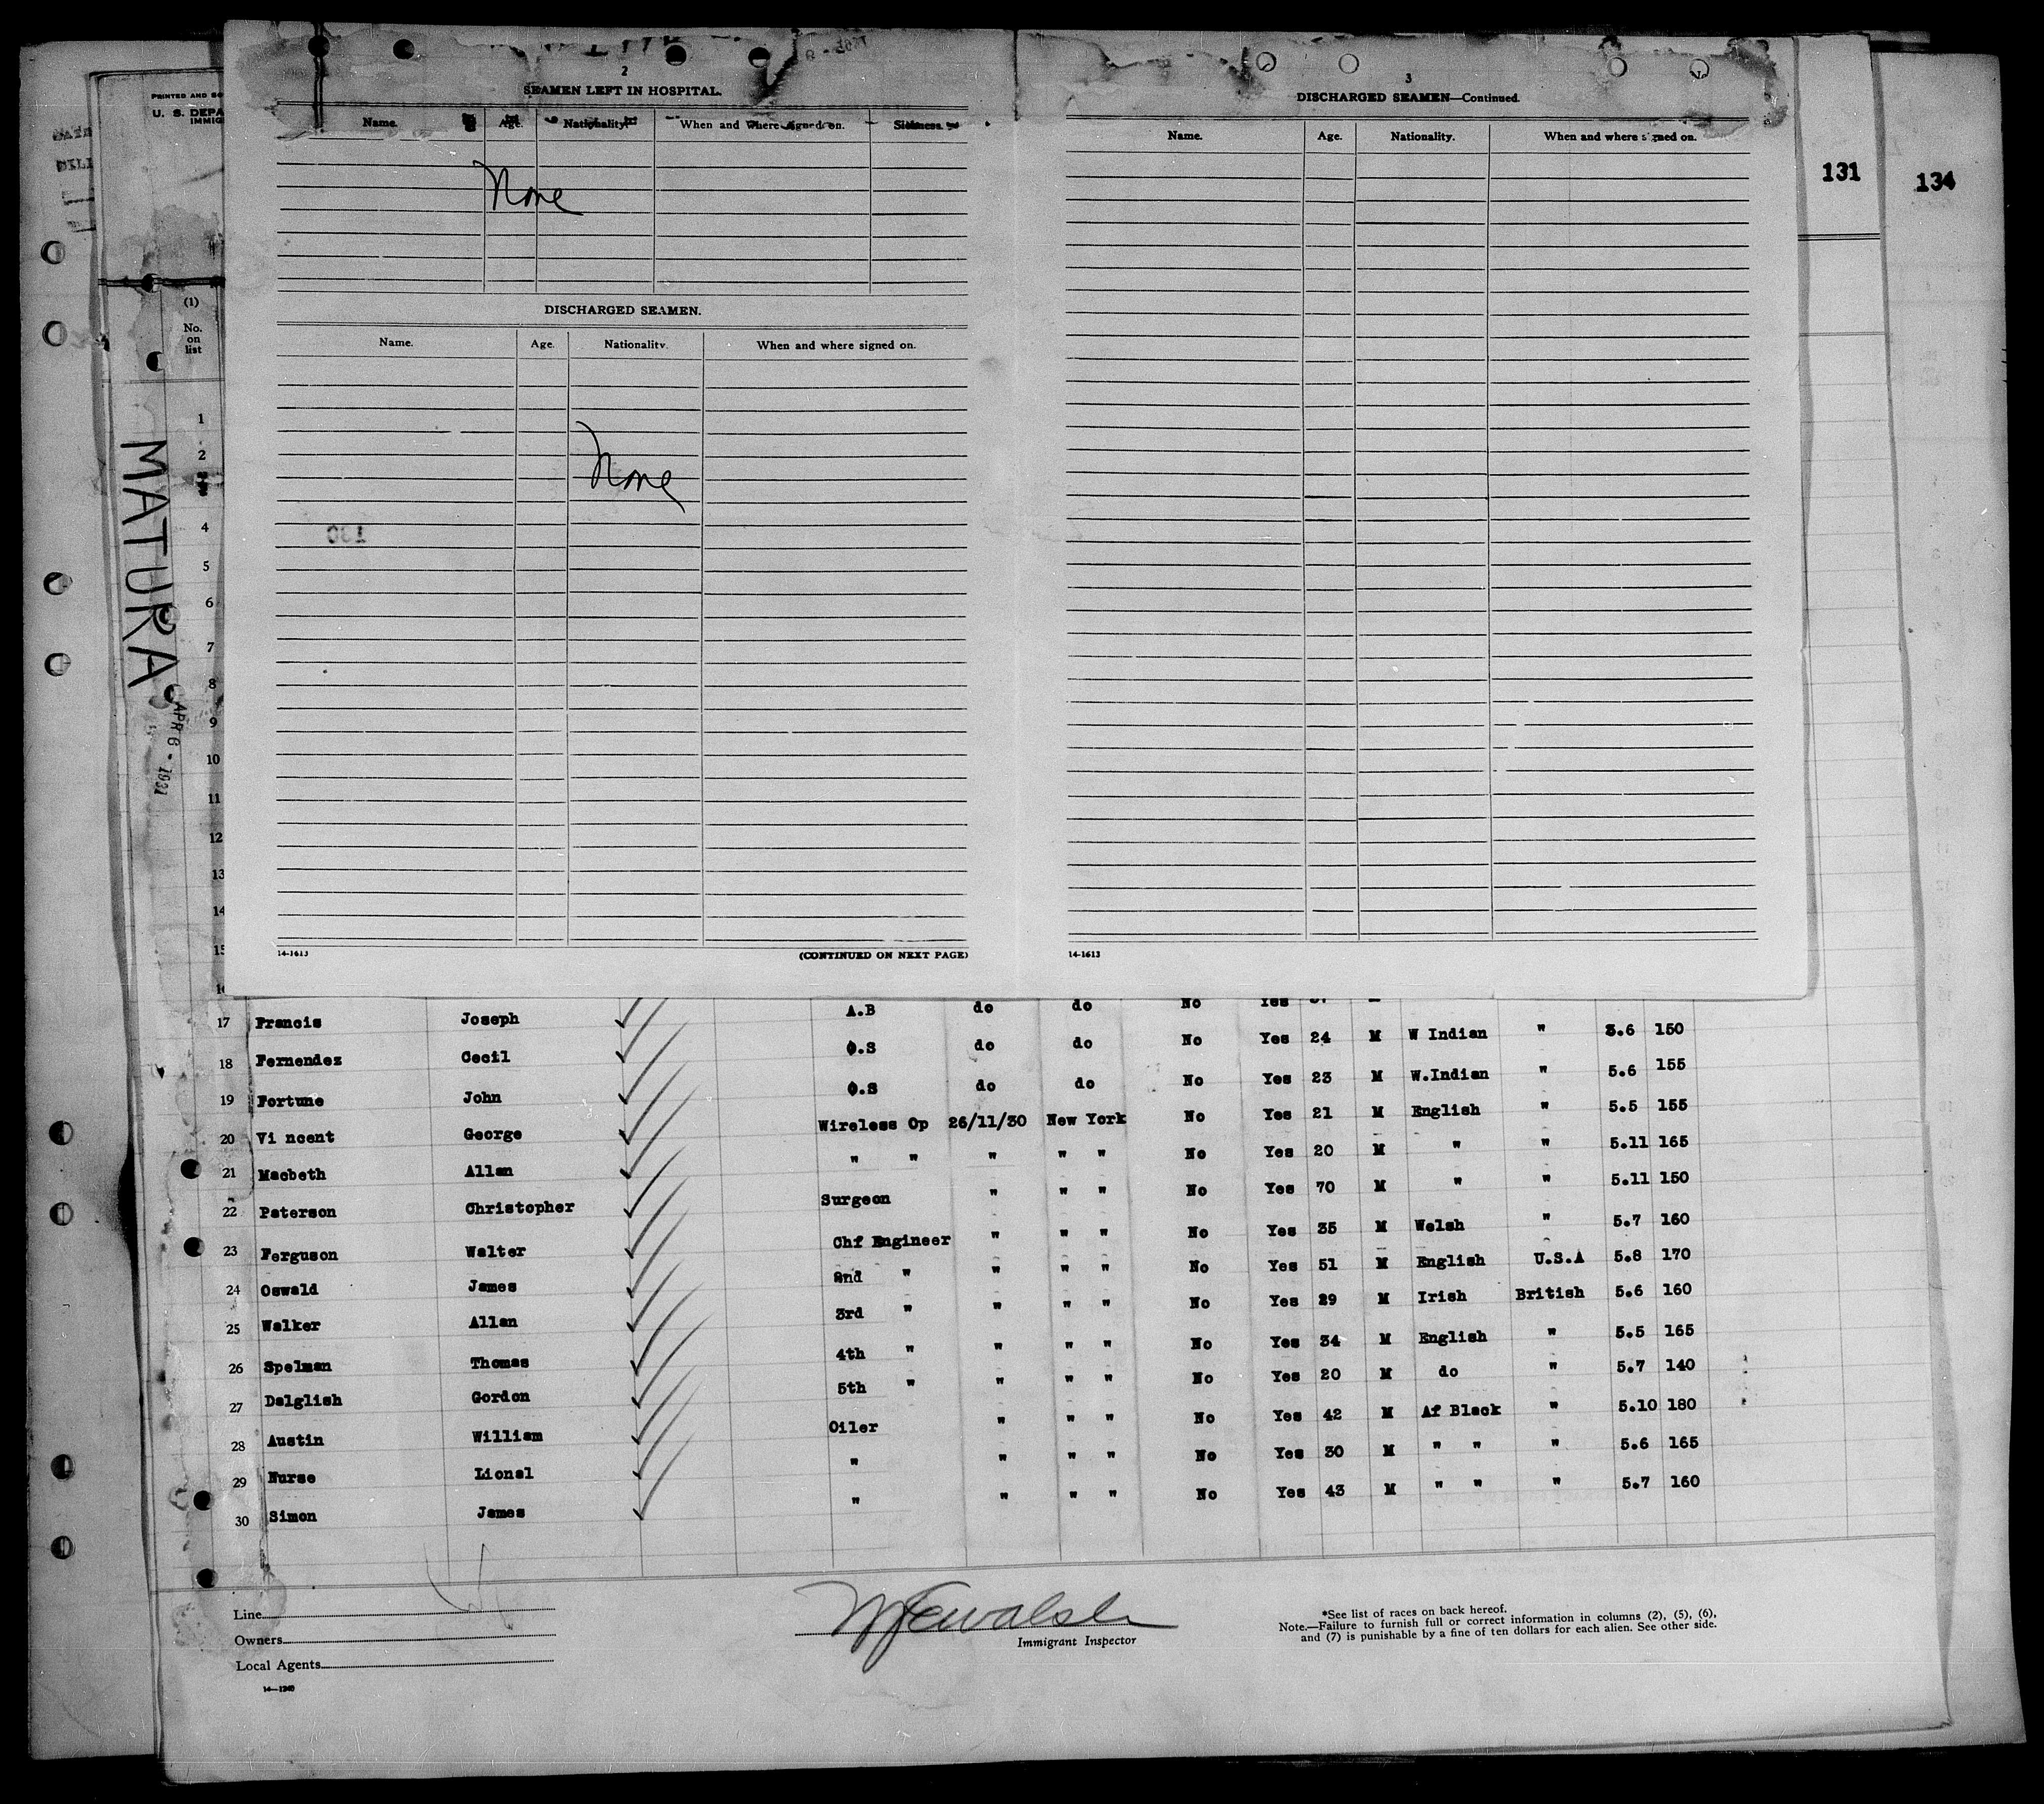 PRINTED AND SO
U. S. DEPA
IMMIG
2
SEAMEN LEFT IN HOSPITAL.
Name. Age. Nationality. When and where signed on. Sickness.
None
DISCHARGED SEAMEN.
Name. Age. Nationality. When and where signed on.
None
130
14-1613 (CONTINUED ON NEXT PAGE)
3
DISCHARGED SEAMEN—Continued.
Name. Age. Nationality. When and where signed on.
14-1613
131
134
(1)
No.
on
list
MATURA
APR 6 - 1931
1
2
4
5
6
7
8
9
10
11
12
13
14
15
17 Francis Joseph A.B do do No Yes
18 Fernendez Cecil O.S do do No Yes 24 M W Indian " 5.6 150
19 Fortune John O.S do do No Yes 23 M W.Indian " 5.6 155
20 Vi ncent George Wireless Op 26/11/30 New York No Yes 21 M English " 5.5 155
21 Macbeth Allan " " " " " No Yes 20 M " " 5.11 165
22 Paterson Christopher Surgeon " " " No Yes 70 M " " 5.11 150
23 Ferguson Walter Chf Engineer " " " No Yes 35 M Welsh " 5.7 160
24 Oswald James 2nd " " " " No Yes 51 M English U.S.A 5.8 170
25 Walker Allan 3rd " " " " No Yes 29 M Irish British 5.6 160
26 Spelman Thomas 4th " " " " No Yes 34 M English " 5.5 165
27 Dalglish Gordon 5th " " " " No Yes 20 M do " 5.7 140
28 Austin William Oiler " " " No Yes 42 M Af Black " 5.10 180
29 Nurse Lionel " " " " No Yes 30 M " " " 5.6 165
30 Simon James " " " " No Yes 43 M " " " 5.7 160
Line
Owners
Local Agents
14—1240
Immigrant Inspector
*See list of races on back hereof.
Note.—Failure to furnish full or correct information in columns (2), (5), (6),
and (7) is punishable by a fine of ten dollars for each alien. See other side.